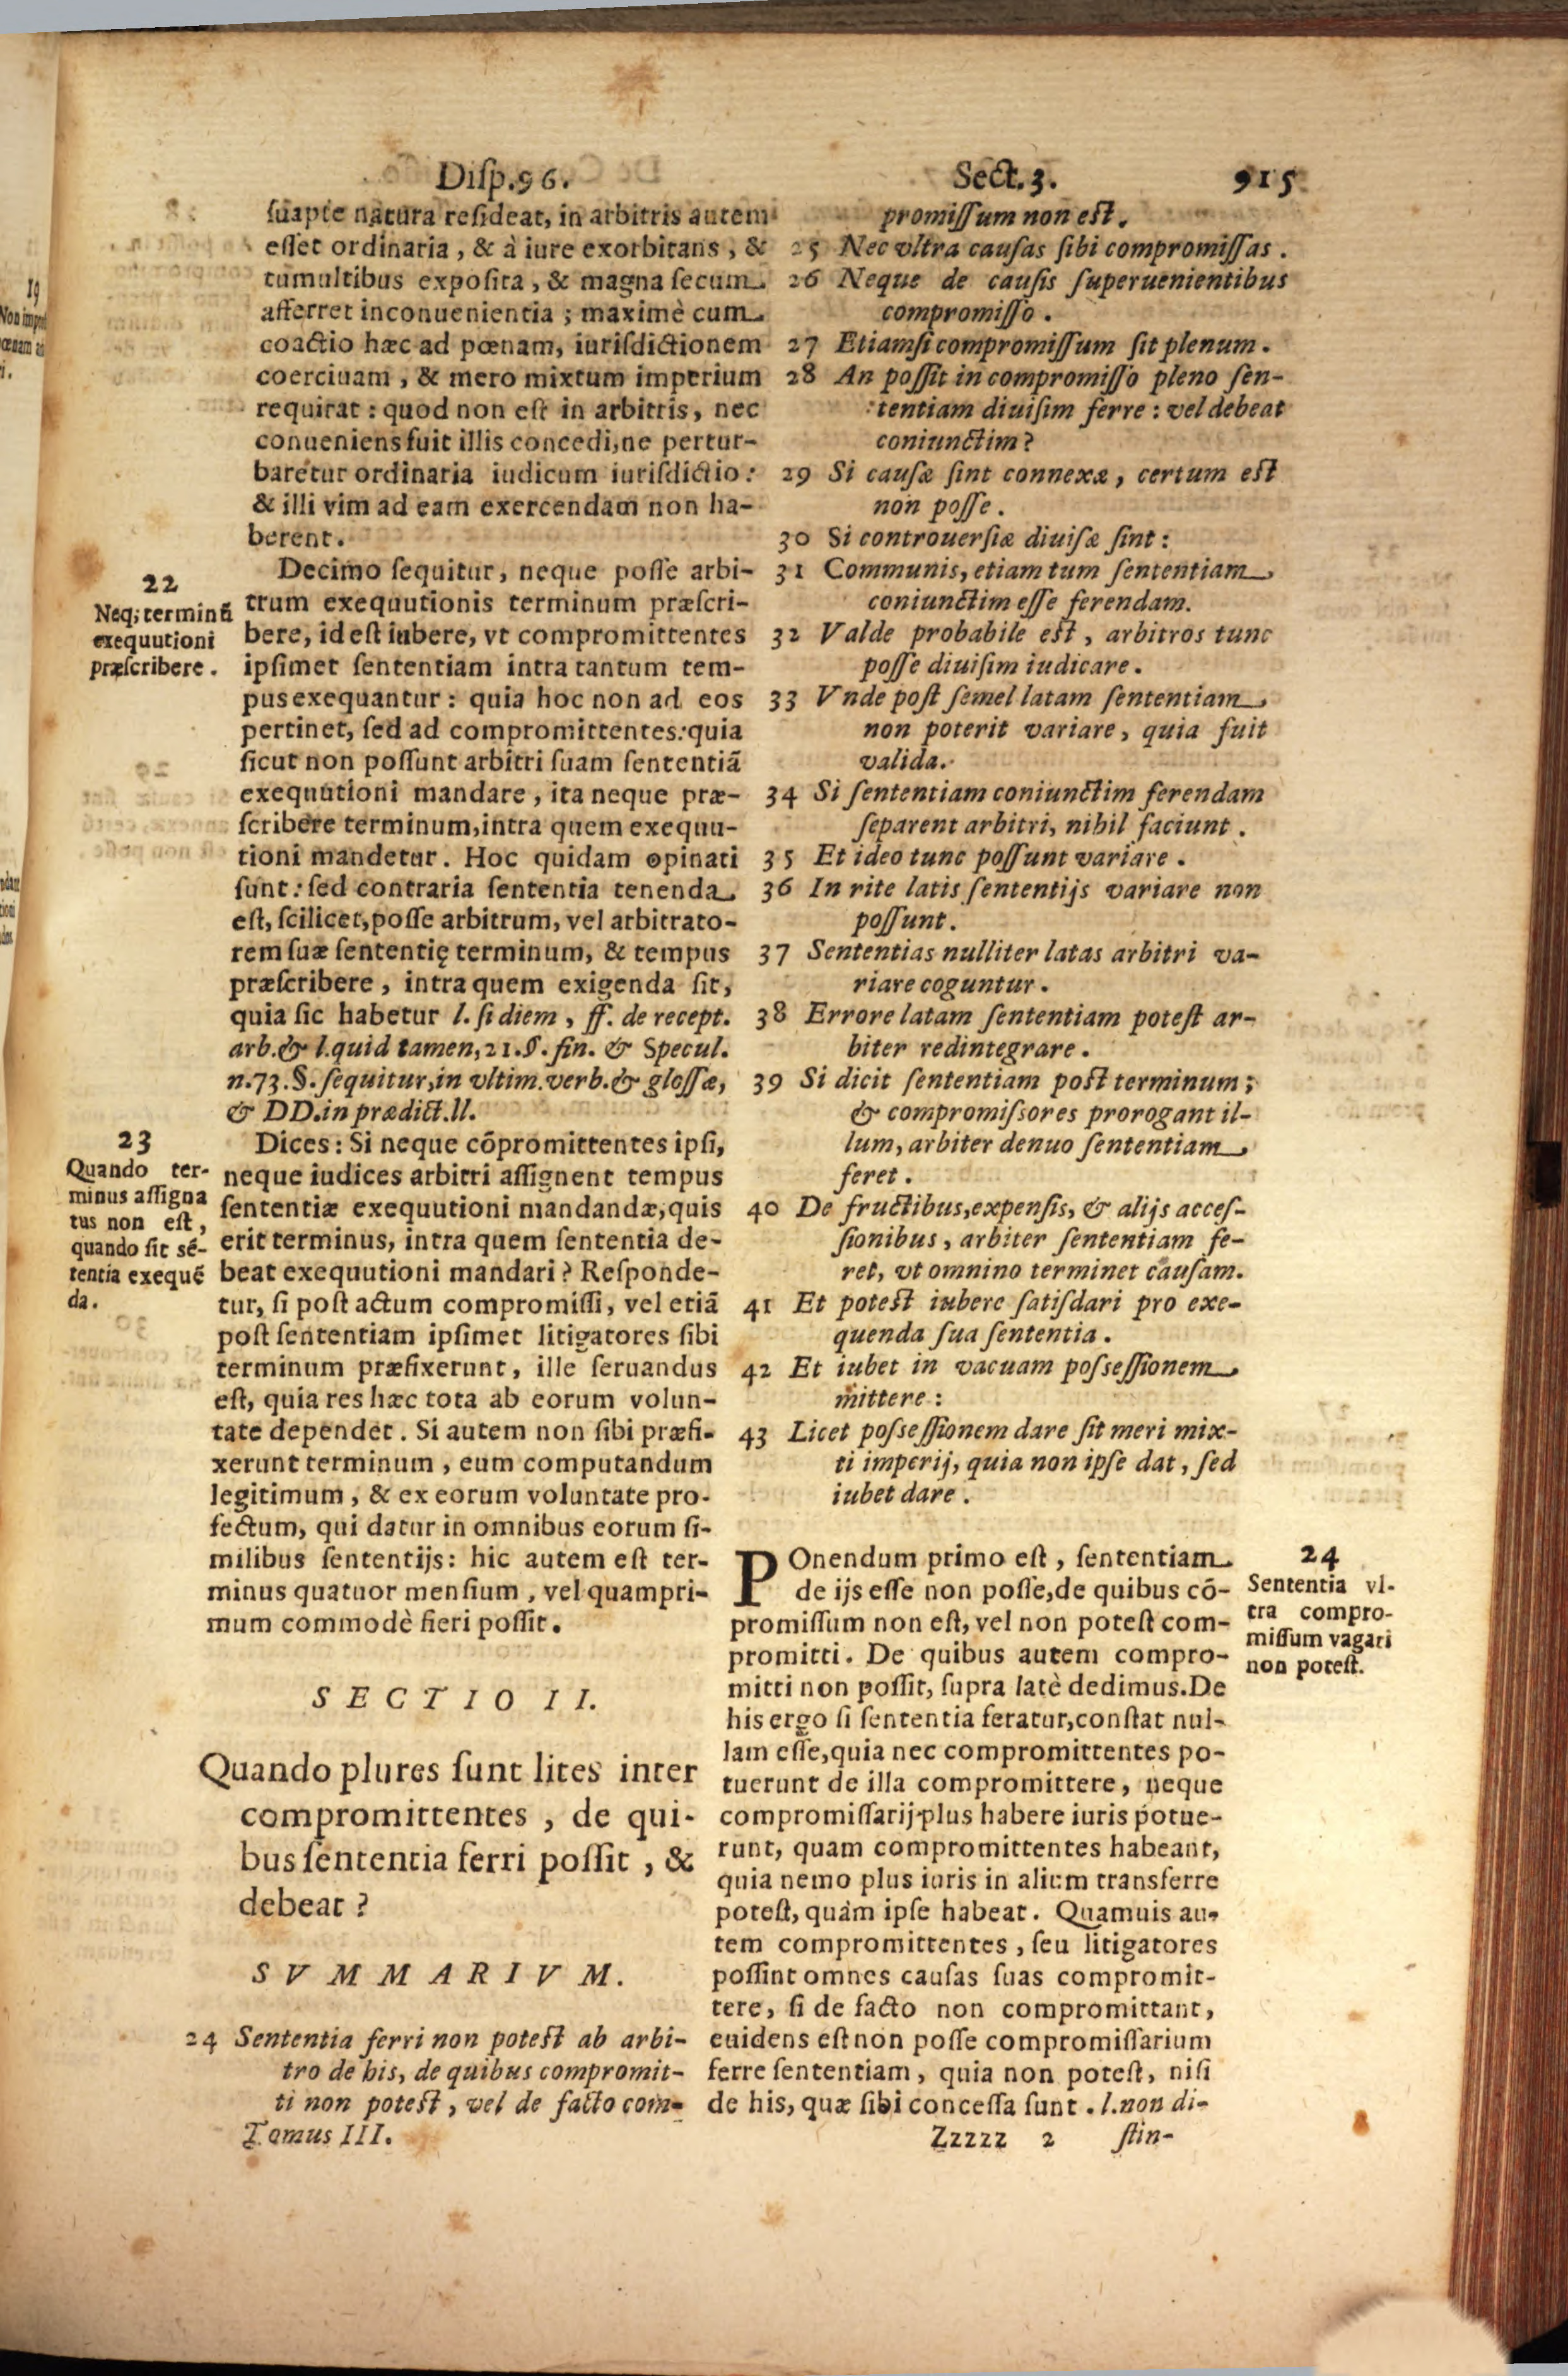 Disp.96. Sect.3. 915
suapte natura resideat, in arbitris autem
esset ordinaria, & à iure exorbitans, &
tumultibus exposita, & magna secum
afferret inconuenientia; maximè cum
coactio hæc ad pœnam, iurisdictionem
coerciuam, & mero mixtum imperium
requirat: quod non est in arbitris, nec
conueniens fuit illis concedi, ne pertur-
baretur ordinaria iudicum iurisdictio:
& illi vim ad eam exercendam non ha-
berent.
22
Neq; terminũ
exequutioni
præscribere.
Decimo sequitur, neque posse arbi-
trum exequutionis terminum præscri-
bere, id est iubere, vt compromittentes
ipsimet sententiam intra tantum tem-
pus exequantur: quia hoc non ad eos
pertinet, sed ad compromittentes: quia
sicut non possunt arbitri suam sententiã
exequutioni mandare, ita neque præ-
scribere terminum, intra quem exequu-
tioni mandetur. Hoc quidam opinati
sunt: sed contraria sententia tenenda
est, scilicet, posse arbitrum, vel arbitrato-
rem suæ sententię terminum, & tempus
præscribere, intra quem exigenda sit,
quia sic habetur l. si diem, ff. de recept.
arb. & l. quid tamen, 21. §. fin. & Specul.
n.73. §. sequitur, in vltim. verb. & glossæ,
& DD. in prædict. ll.
23
Quando ter-
minus assigna
tus non est,
quando sit sẽ-
tentia exequẽ
da.
Dices: Si neque cõpromittentes ipsi,
neque iudices arbitri assignent tempus
sententiæ exequutioni mandandæ, quis
erit terminus, intra quem sententia de-
beat exequutioni mandari? Responde-
tur, si post actum compromissi, vel etiã
post sententiam ipsimet litigatores sibi
terminum præfixerunt, ille seruandus
est, quia res hæc tota ab eorum volun-
tate dependet. Si autem non sibi præfi-
xerunt terminum, eum computandum
legitimum, & ex eorum voluntate pro-
fectum, qui datur in omnibus eorum si-
milibus sententijs: hic autem est ter-
minus quatuor mensium, vel quampri-
mum commodè fieri possit.
SECTIO II.
Quando plures sunt lites inter
compromittentes, de qui-
bus sententia ferri possit, &
debeat?
SVMMARIVM.
24 Sententia ferri non potest ab arbi-
tro de his, de quibus compromit-
ti non potest, vel de facto com-
Tomus III.
promissum non est.
25 Nec vltra causas sibi compromissas.
26 Neque de causis superuenientibus
compromisso.
27 Etiamsi compromissum sit plenum.
28 An possit in compromisso pleno sen-
tentiam diuisim ferre: vel debeat
coniunctim?
29 Si causæ sint connexæ, certum est
non posse.
30 Si controuersiæ diuisæ sint:
31 Communis, etiam tum sententiam
coniunctim esse ferendam.
32 Valde probabile est, arbitros tunc
posse diuisim iudicare.
33 Vnde post semel latam sententiam
non poterit variare, quia fuit
valida.
34 Si sententiam coniunctim ferendam
separent arbitri, nihil faciunt.
35 Et ideo tunc possunt variare.
36 In rite latis sententijs variare non
possunt.
37 Sententias nulliter latas arbitri va-
riare coguntur.
38 Errore latam sententiam potest ar-
biter redintegrare.
39 Si dicit sententiam post terminum;
& compromissores prorogant il-
lum, arbiter denuo sententiam
feret.
40 De fructibus, expensis, & alijs acces-
sionibus, arbiter sententiam fe-
ret, vt omnino terminet causam.
41 Et potest iubere satisdari pro exe-
quenda sua sententia.
42 Et iubet in vacuam possessionem
mittere:
43 Licet possessionem dare sit meri mix-
ti imperij, quia non ipse dat, sed
iubet dare.
24
Sententia vl-
tra compro-
missum vagari
non potest.
POnendum primo est, sententiam
de ijs esse non posse, de quibus cõ-
promissum non est, vel non potest com-
promitti. De quibus autem compro-
mitti non possit, supra latè dedimus. De
his ergo si sententia feratur, constat nul-
lam esse, quia nec compromittentes po-
tuerunt de illa compromittere, neque
compromissarij plus habere iuris potue-
runt, quam compromittentes habeant,
quia nemo plus iuris in alium transferre
potest, quàm ipse habeat. Quamuis au-
tem compromittentes, seu litigatores
possint omnes causas suas compromit-
tere, si de facto non compromittant,
euidens est non posse compromissarium
ferre sententiam, quia non potest, nisi
de his, quæ sibi concessa sunt. l. non di-
Zzzzz 2 stin-